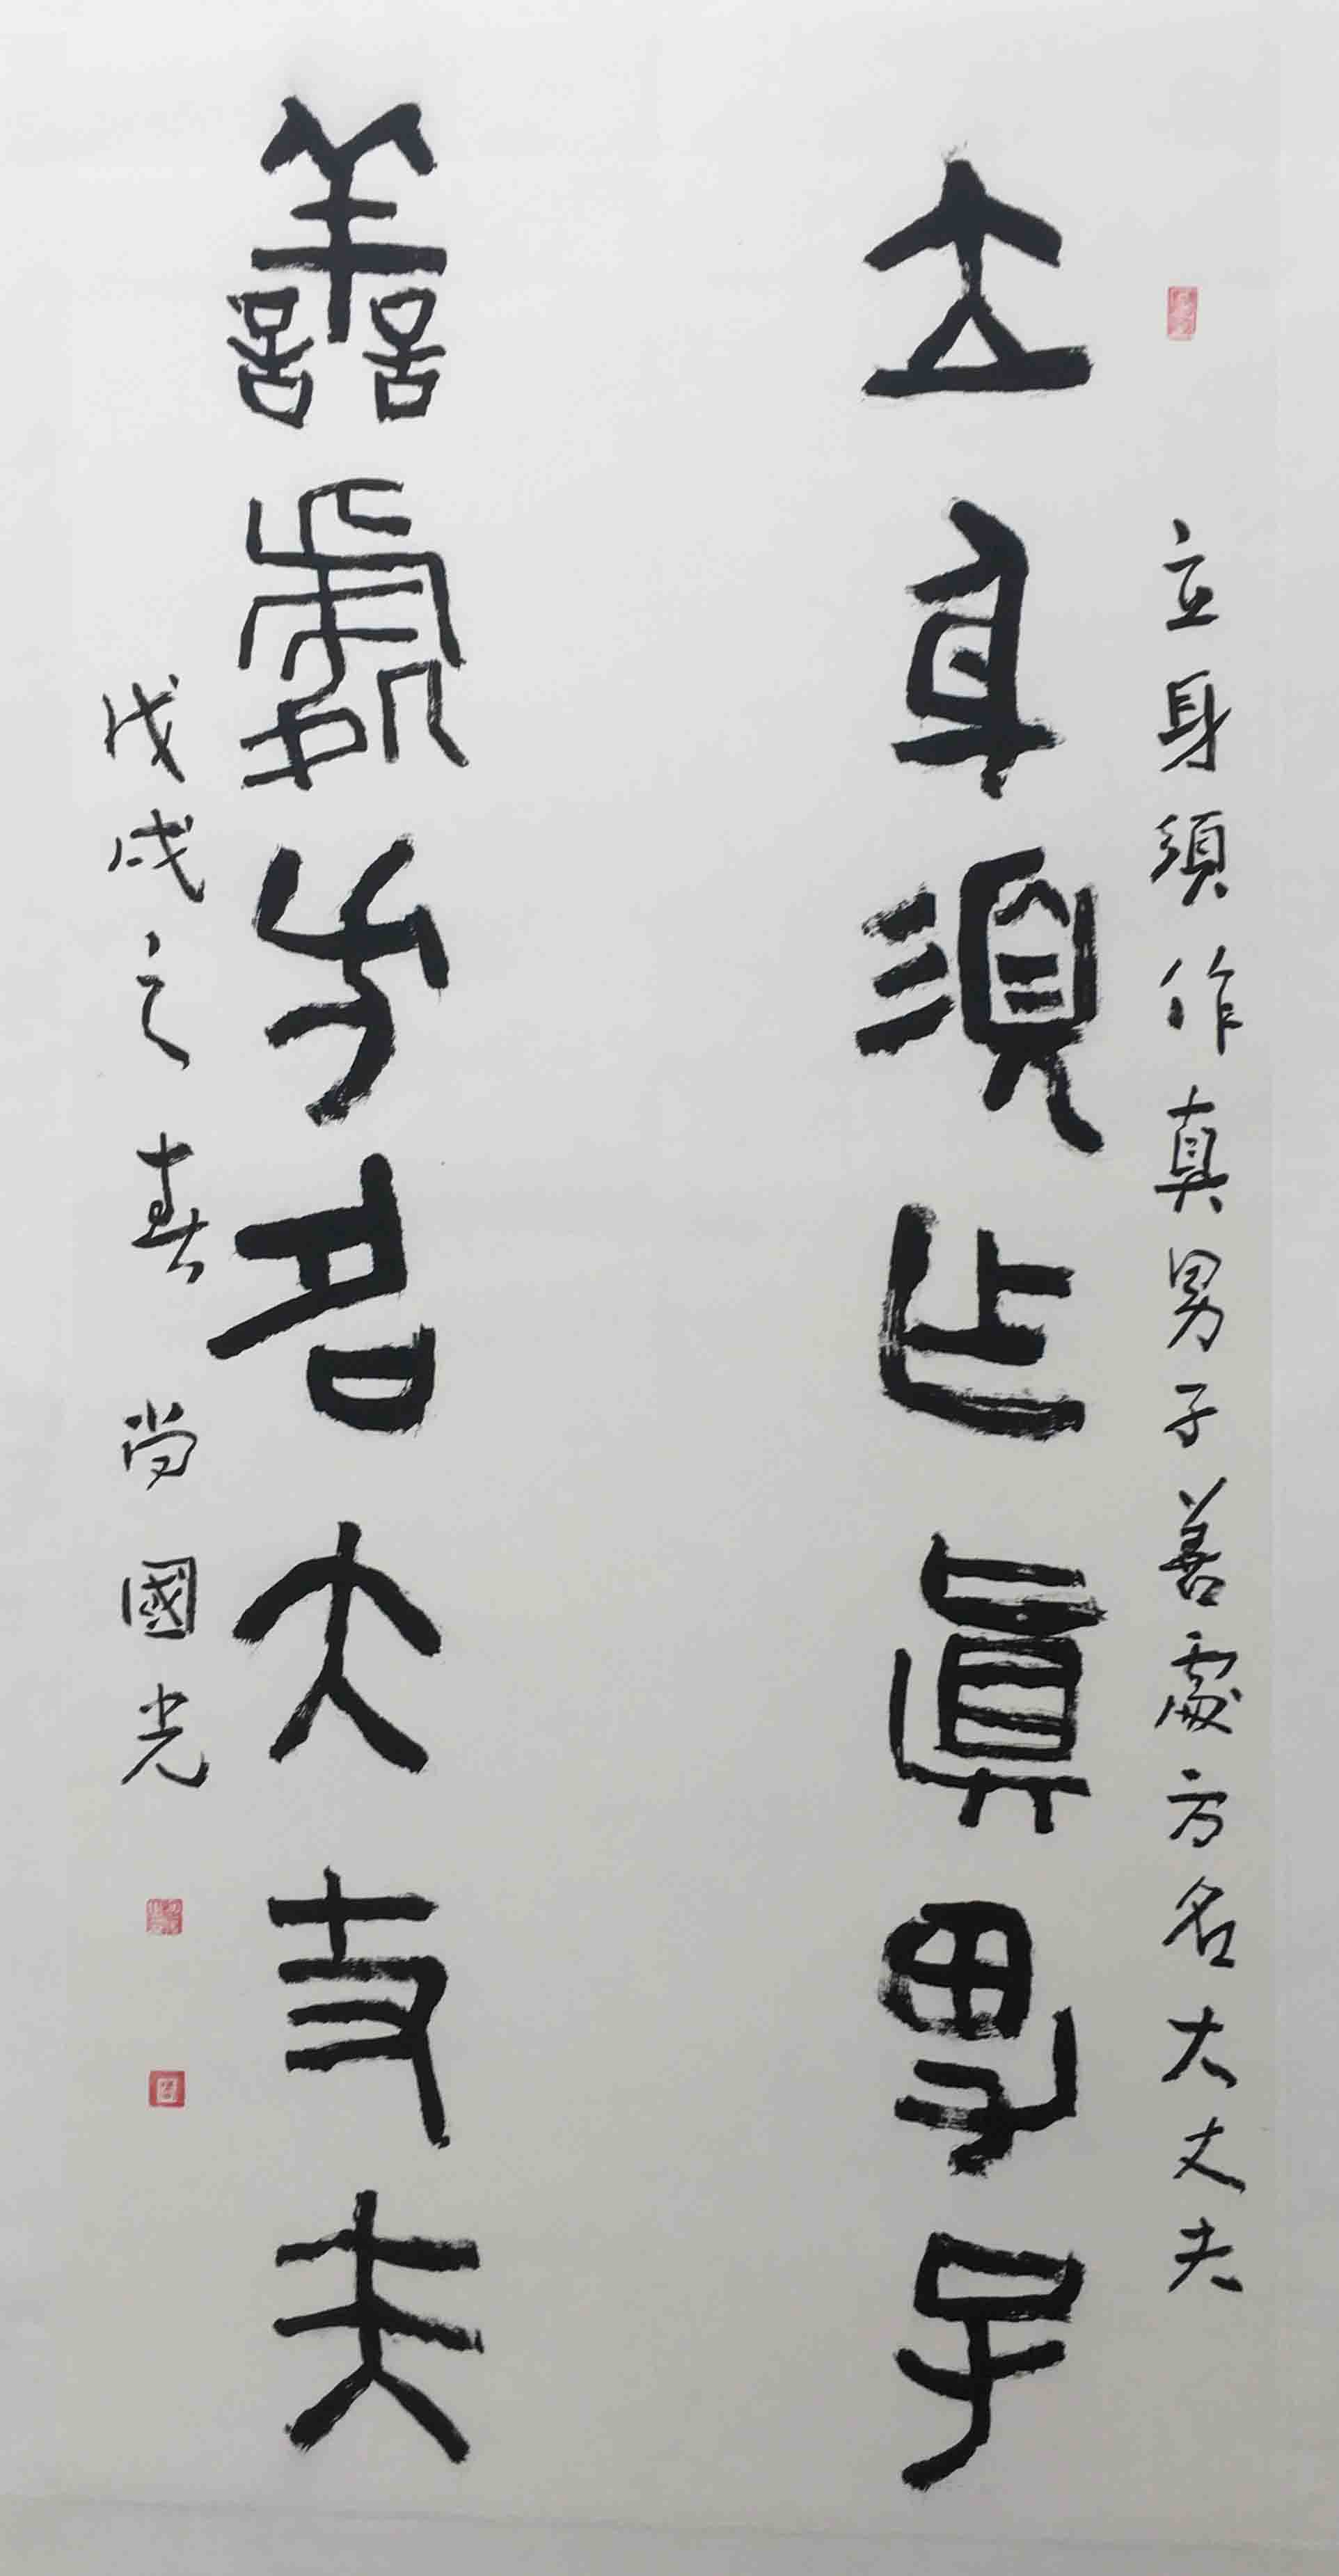 立身須作真男子善處方名大丈夫
立身須乍眞男子
善處方名大丈夫
戊戌之春 尚國光